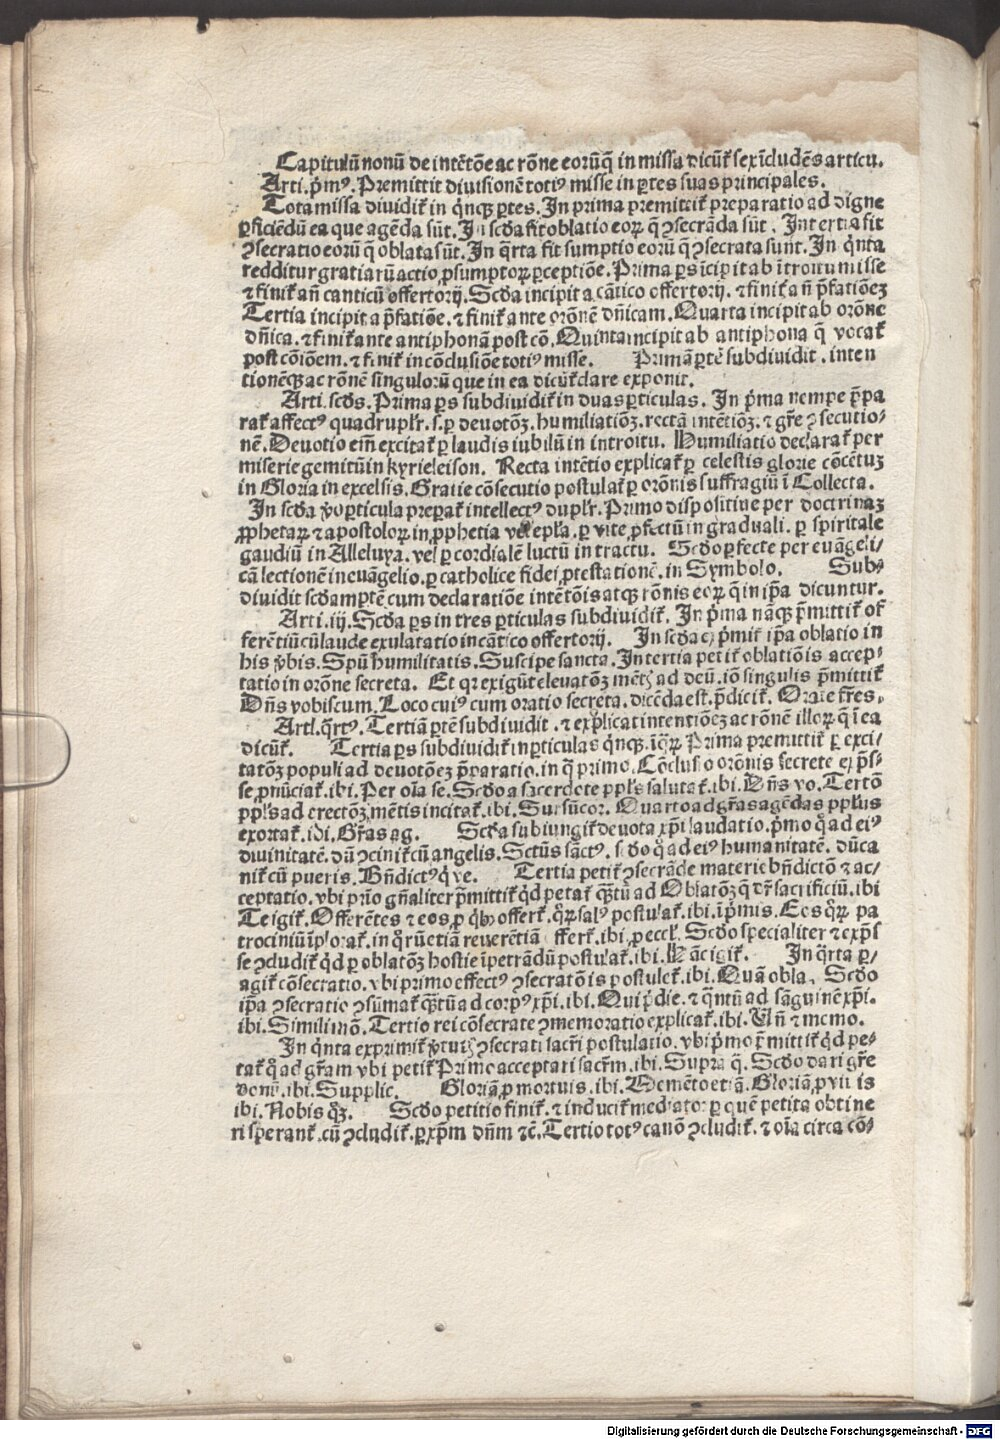 Capitulū nonū de intētōe ac rōne eorūq̄ in missa dicūt̄ sex īcludēs articu.
Arti. p̄mꝰ. Premittit divisionē totiꝰ misse in ꝑtes suas principales.
Tota missa dividit̄ in q̄nqꝫ ꝑtes. In prima premittit̄ preparatio ad digne
ꝑficiēdū ea que agēda sūt. In scd̄a fit oblatio eoꝝ q̄ ꝯsecrāda sūt. In tertia fit
ꝯsecratio eorū q̄ oblata sūt. In q̄rta fit sumptio eorū q̄ ꝯsecrata sunt. In q̄nta
redditur gratiarū actio ꝓ sumptoꝝ ꝑceptiōe. Prima ꝑs īcipit ab ītroitu misse
⁊ finit̄ añ canticū offertorij. Scd̄a incipit a cātico offertorij. ⁊ finit̄ añ p̄fatiōeꝫ
Tertia incipit a p̄fatiōe. ⁊ finit̄ ante orōnē dn̄icam. Quarta incipit ab orōne
dn̄ica. ⁊ finit̄ ante antiphonā post cō. Quinta incipit ab antiphona q̄ vocat̄
post cōiōem. ⁊ finit̄ in cōclusiōe totiꝰ misse. Primā ꝑtē subdividit. inten
tionēqꝫ ac rōnē singulorū que in ea dicūt̄ clare exponit.
Arti. scd̄s. Prima ꝑs subdividit̄ in duas ꝑticulas. In p̄ma nempe p̄pa
rat̄ affectꝰ quadruplr̄. s. ꝑ devotōꝫ. humiliatiōꝫ. rectā intētiōꝫ. ⁊ gr̄e ꝯsecutio⸗
nē. Devotio em̄ excitat̄ ꝑ laudis iubilū in introitu. Humiliatio declarat̄ per
miserie gemitū in kyrieleison. Recta intētio explicat̄ ꝑ celestis glorie cōcētuꝫ
in Gloria in excelsis. Gratie cōsecutio postulat̄ ꝑ orōnis suffragiū ī Collecta.
In scd̄a v̄o ꝑticula prepat̄ intellectꝰ duplr̄. Primo dispositive per doctrinaꝫ
ꝓphetaꝝ ⁊ apostoloꝝ in ꝓphetia vel epl̄a. ꝑ vite ꝓfectū in graduali. ꝑ spiritale
gaudiū in Alleluya. vel ꝑ cordialē luctū in tractu. Scd̄o ꝑfecte per euāgeli⸗
cā lectionē in euāgelio. ꝑ catholice fidei ꝓtestationē. in Symbolo. Sub⸗
dividit scd̄am ꝑtē cum declaratiōe intētōis atqꝫ rōnis eoꝝ q̄ in ip̄a dicuntur.
Arti. iij. Scd̄a ꝑs in tres ꝑticulas subdividit̄. In p̄ma nāqꝫ p̄mittit̄ of
ferētiū cū laude exulatatio in cātico offertorij. In scd̄a exp̄mit̄ ip̄a oblatio in
his v̄bis. Spū humilitatis. Suscipe sancta. In tertia petit̄ oblatiōis accep⸗
tatio in orōne secreta. Et qꝛ exigūt elevatōꝫ mētꝭ ad deū. iō singulis p̄mittit̄
Dn̄s vobiscum. Loco cuiꝰ cum oratio secreta. dicēda est. p̄dicit̄. Orate fr̄es.
Arti. q̄rtꝰ. Tertiā ꝑtē subdividit. ⁊ explicat intentiōeꝫ ac rōnē illoꝝ q̄ ī ea
dicūt̄. Tertia ꝑs subdividit̄ in ꝑticulas q̄nqꝫ. ī quaꝝ Prima premittit̄ ꝑ exci⸗
tatōꝫ populi ad devotōeꝫ p̄paratio. in q̄ primo. Cōclusio orōnis secrete exp̄s⸗
se ꝓnūciat̄. ibi. Per oīa se. Scd̄o a sacerdete ppl̄s salutat̄. ibi. Dn̄s vo. Tertō
ppl̄s ad erectōꝫ mētis incitat̄. ibi. Sursū cor. Quarto ad gr̄as agēdas ppl̄us
exortat̄. ibi. Gr̄as ag. Scd̄a subiungit̄ devota xp̄i laudatio. p̄mo qͦ ad eiꝰ
divinitatē. dū ꝯcinit̄ cū angelis. Sctūs sāctꝰ. scd̄o qͦ ad eiꝰ humanitatē. dū ca
nit̄ cū pueris. Bn̄dictꝰ q̄ ve. Tertia petit̄ ꝯsecrāde materie bn̄dictō ⁊ ac⸗
ceptatio. vbi prīo gn̄aliter p̄mittit̄ qd̄ petat̄ qꝫtū ad Oblatōꝫ q̄ dr̄ sacrificiū. ibi
Te igit̄. Offerētes ⁊ eos ꝓ qͥbꝰ offert̄. quoꝝ salꝰ postulat̄. ibi. īp̄mis. Eos quoꝝ pa
trociniū īplorat̄. in quoꝝ etiā reverētiā offert̄. ibi. ꝓ eccl̄. Scd̄o specialiter ⁊ exp̄s
se ꝯcludit̄ qd̄ ꝑ oblatōꝫ hostie īpetrādū postulat̄. ibi. Hāc igit̄. In q̄rta ꝑ⸗
agit̄ cōsecratio. vbi primo effectꝰ ꝯsecratōis postulet̄. ibi. Quā obla. Scd̄o
ip̄a ꝯsecratio ꝯsūmat̄ qꝫtū ad corpꝰ xp̄i. ibi. Qui p̄die. ⁊ q̄ntū ad sāguinē xp̄i.
ibi. Simili mō. Tertio rei cōsecrate ꝯmemoratio explicat̄. ibi. Vn̄ ⁊ memo.
In q̄nta exprimit̄ ꝯsecrati sacr̄i postulatio. vbi p̄mo p̄mittit̄ qd̄ pe⸗
tat̄ qͦ ad gr̄am vbi petit̄ Primo acceptari sacr̄m. ibi. Supra q̄. Scd̄o dari gr̄e
donū. ibi. Supplic. Gloriā ꝓ mortuis. ibi. Memēto etiā. Gloriā ꝓ viuis
ibi. Nobis qͦqꝫ. Scd̄o petitio finit̄. ⁊ inducit̄ mediator ꝑ quē petita obtine
ri sperant̄. cū ꝯcludit̄. ꝑ xp̄m dn̄m ⁊c̄. Tertio totꝰ canō ꝯcludit̄. ⁊ oīa circa cō⸗
Digitalisierung gefördert durch die Deutsche Forschungsgemeinschaft - DFG